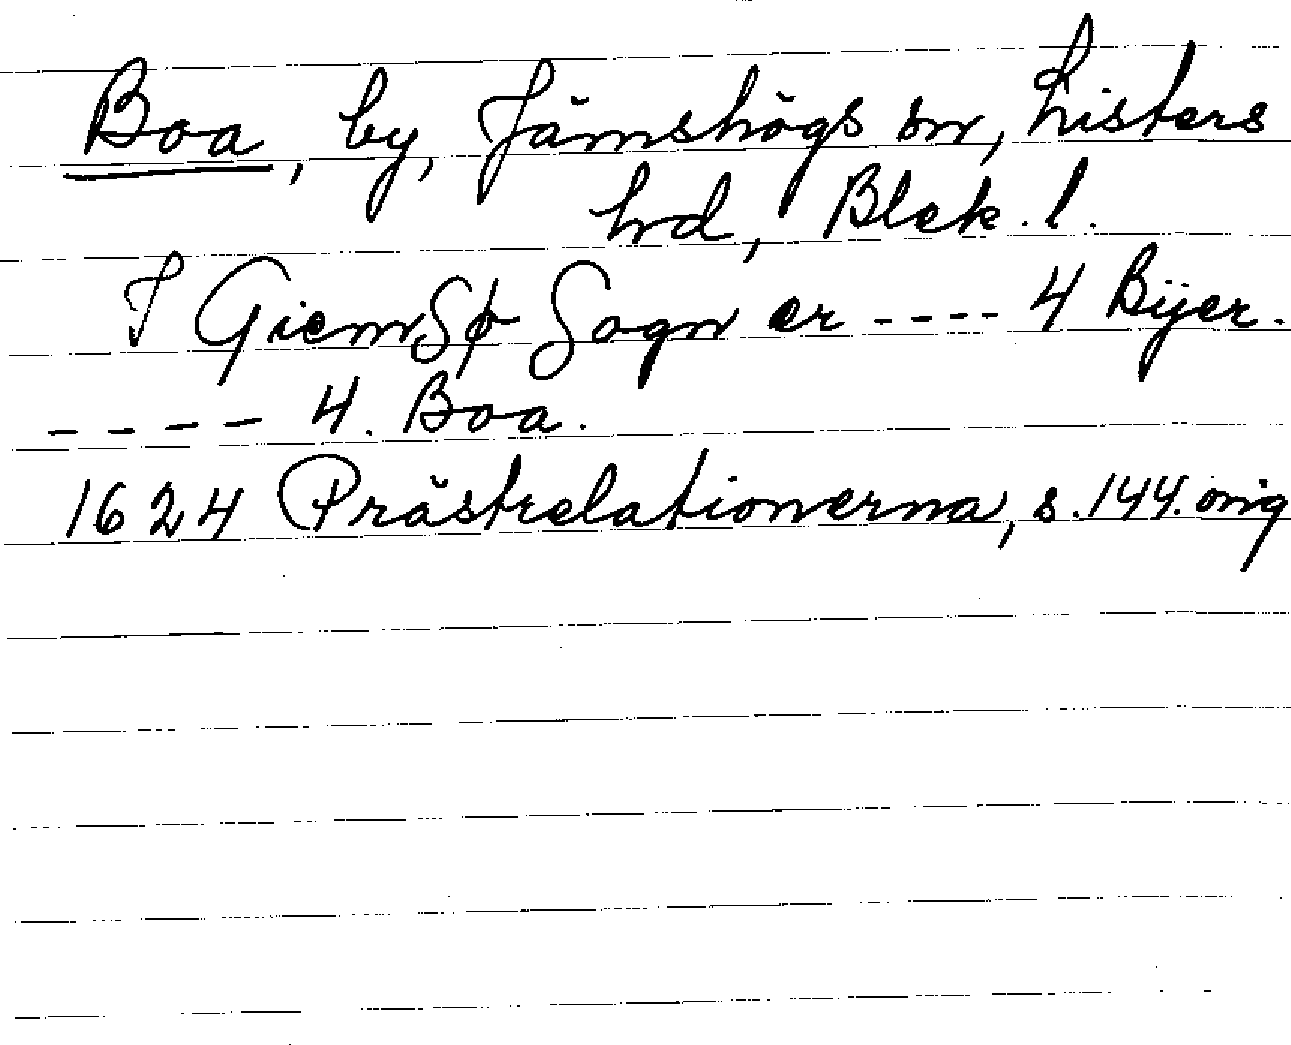 Boa, by, Jämshögs sn, Listers
hrd, Blek. l.
I GiemSø Sogn er ---- 4 Bÿer.
---- 4. Boa.
1624 Prästrelationerna, s. 144. orig